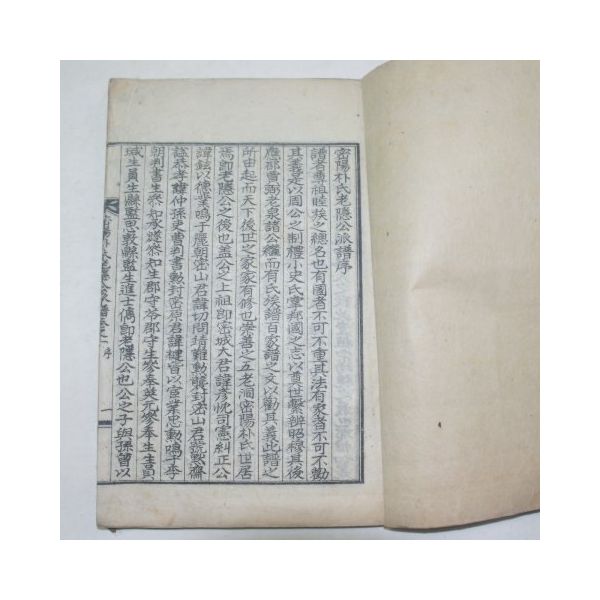 密陽朴氏老隱公派譜序
譜者尊祖睦族之總名也有國者不可不重其法有家者不可不勸
其義是以周公之制禮小史氏掌邦國之志以奠世繫辨昭穆其後
應邵曾弼老泉諸公繼而有氏族譜百家譜之文以勸其義此譜之
所由起而天下後世之家家有修也安善之五老洞密陽朴氏世居
焉即老隱公之後也盖公之上祖即密城大君諱彦忱司憲糾正公
諱鉉以德業鳴于麗朝密山君諱切問靖難動襲封密山君號默齋
諡恭孝諱仲孫吏曹判書勳封密原君諱楗皆以宦業忠勳鳴于李
朝判書生參知承遂參知生郡守苓郡守生參奉英元參奉生生員
珹生員生縣監思敦縣監生進士僑即老隱公也公之子與孫曾以
密陽朴氏老隱公派譜卷之一 序 一